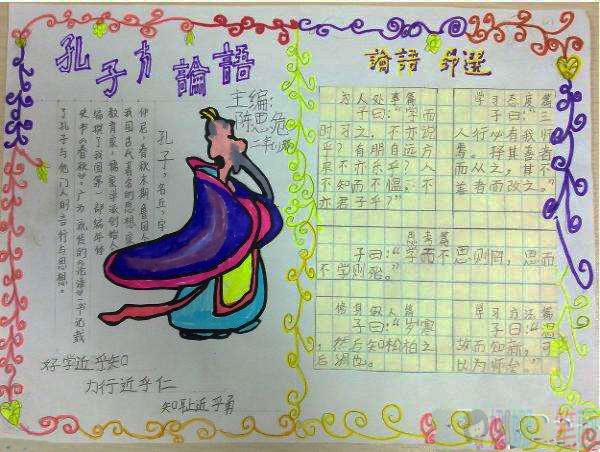 孔子与論語
主编:
陈思危
孔子,名丘,字
仲尼,春秋末期鲁国人
我国古代著名的思想家
教育家,儒家学派创始人
编撰了我国第一部编年体
史书《春秋》。广为流传的《论语》一书记载
了孔子与他门人的言行与思想。
好学近乎知
力行近乎仁
知耻近乎勇
論語 节選
为人处事篇
子曰:“学而
时习之,不亦说
乎?有朋自远方
来不亦乐乎?人
不知而不愠,不
亦君子乎?”
学习态度篇
子曰:“三
人行必有我师
焉。择其善者
而从之,其不
善者而改之。”
思考篇
子曰:“学而不思则罔,思而
不学则殆。”
修身做人篇
子曰:“岁寒
,然后知松柏之
后凋也。
学习方法篇
子曰:“温
故而知新,可
以为师矣。”